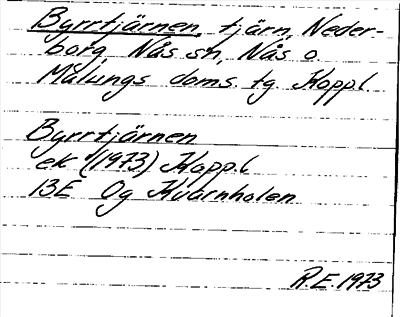 Byrrtjärnen, tjärn, Neder-
borg Nås sn, Nås o
Malungs doms. tg. Koppl.
Byrrtjärnen
ek (1973) Kopp.l
13E 0g Kvarnholen
R.E. 1973